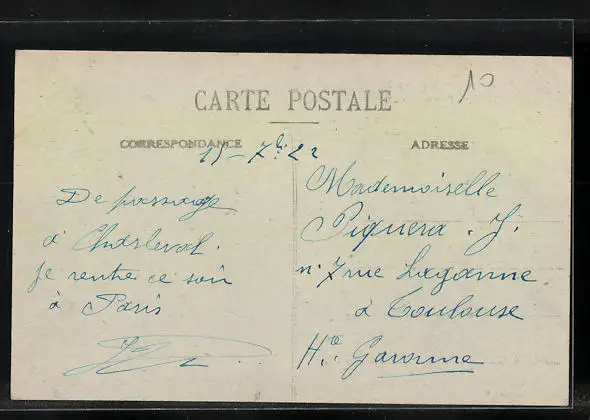 10
CARTE POSTALE
CORRESPONDANCE
ADRESSE
15 - 7bre 22
De passage
à Charleval.
Je rentre ce soir
à Paris
Mademoiselle
Piquera. J.
n: 7 rue Laganne
à Toulouse
Hte. Garonne